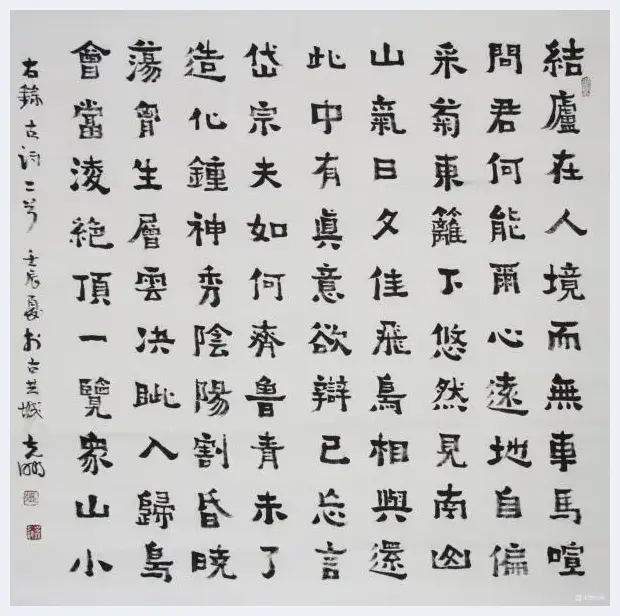 結廬在人境而無車馬喧
問君何能爾心遠地自偏
采菊東籬下悠然見南山
山氣日夕佳飛鳥相與還
此中有眞意欲辯已忘言
岱宗夫如何齊魯青未了
造化鍾神秀陰陽割昏曉
蕩胷生層雲決眦入歸鳥
會當淩絕頂一覽衆山小
右錄古詩二首 壬辰夏於古